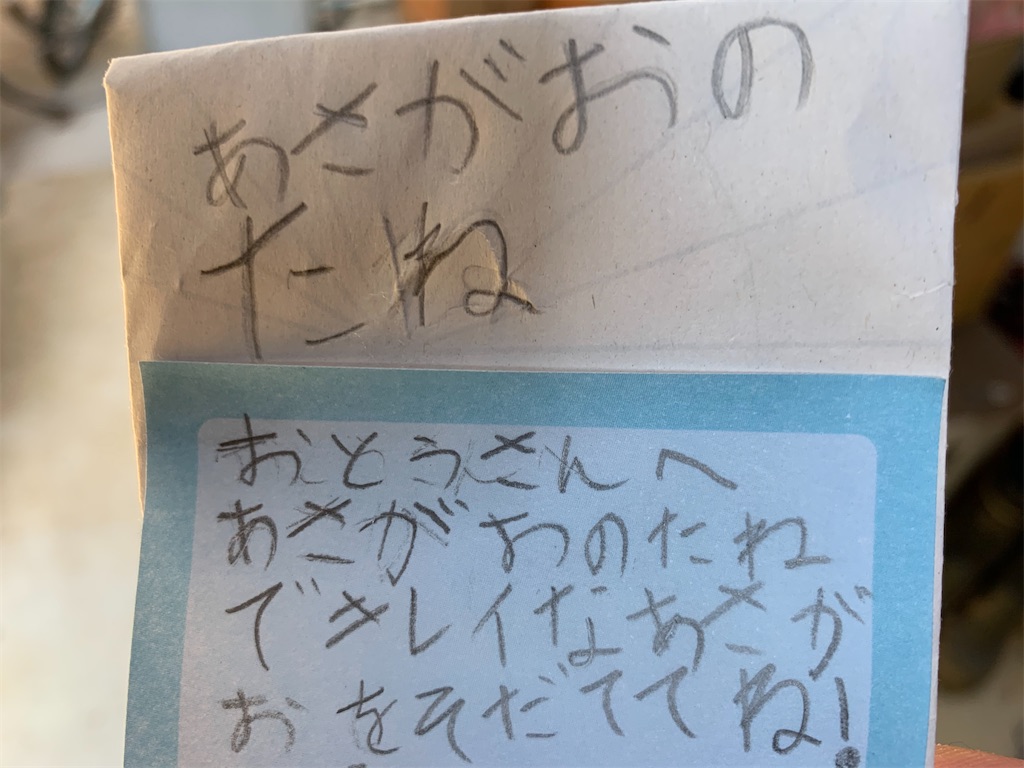 あさがおの
たね
おとうさんへ
あさがおのたね
でキレイなあさが
おをそだててね!